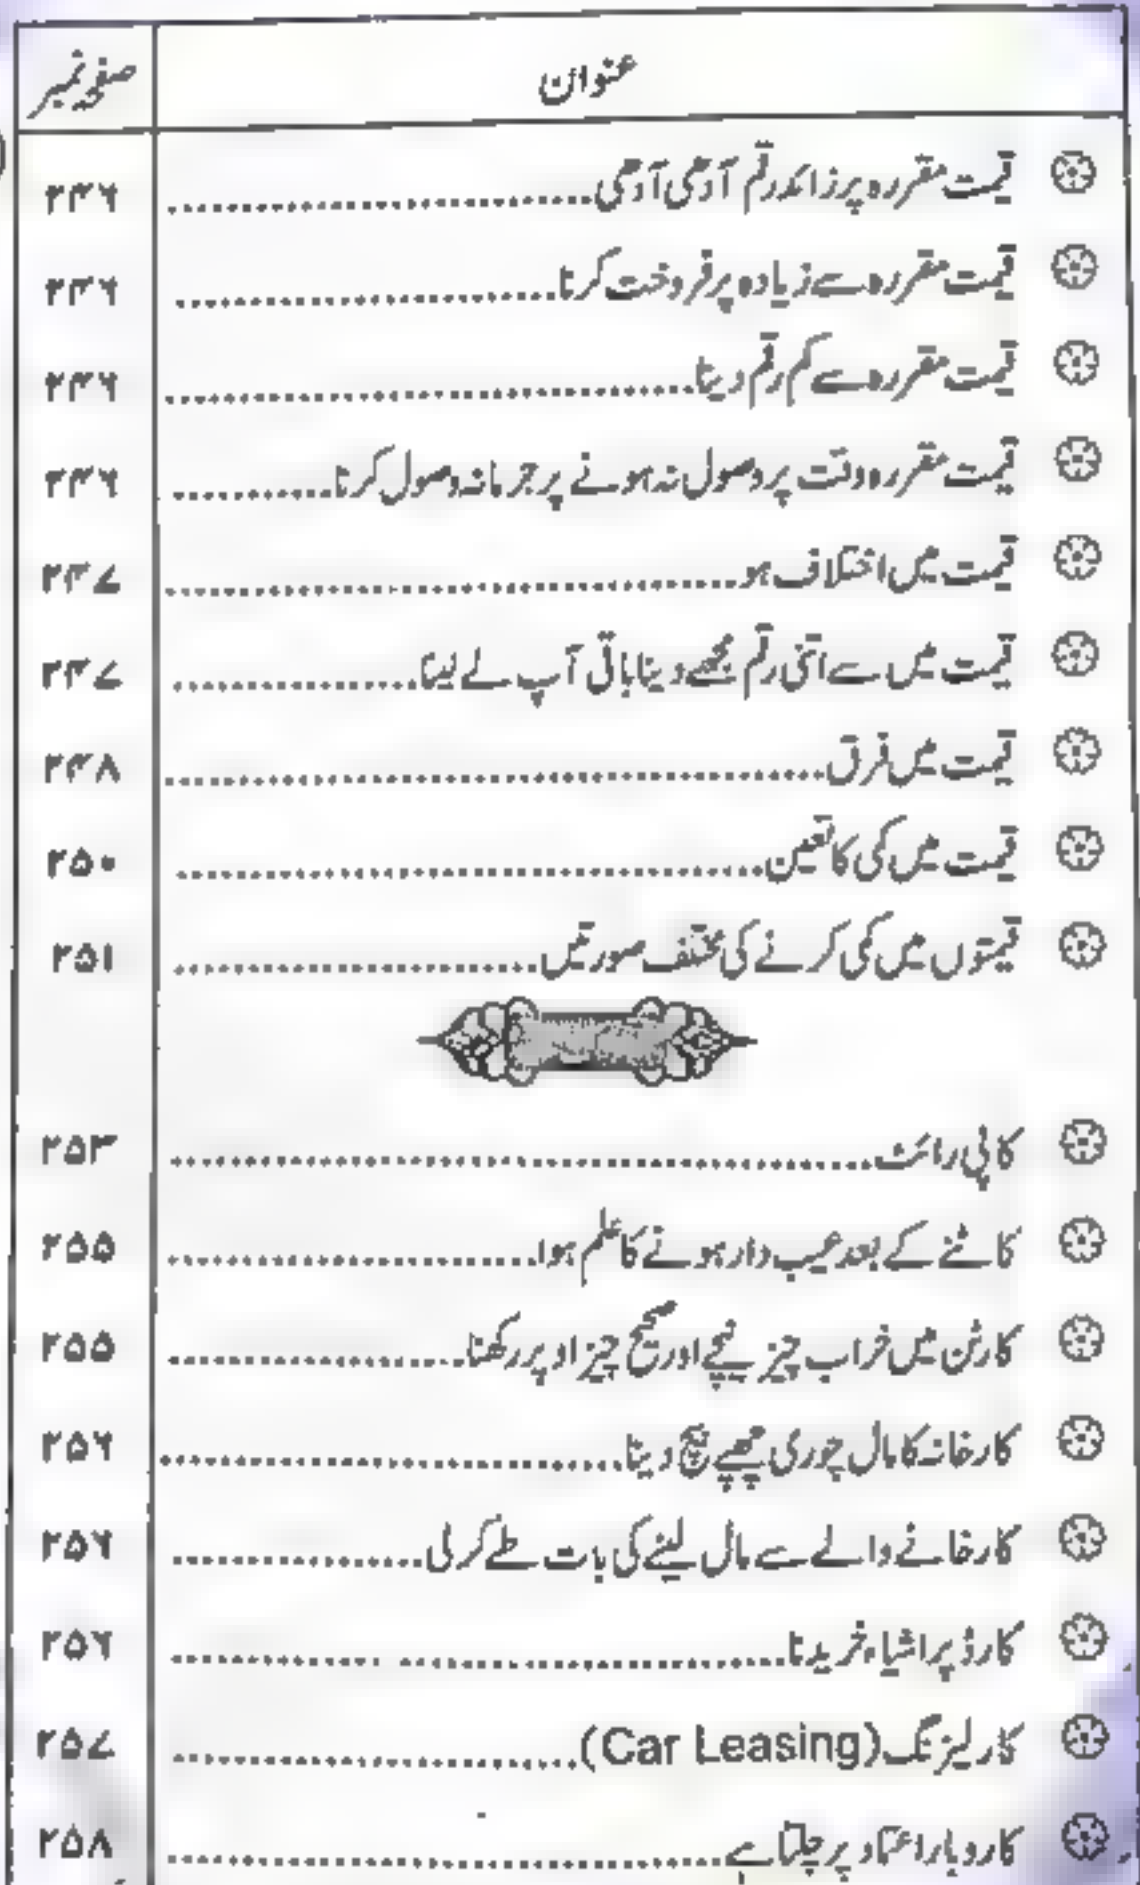 عنوان صفحہ نمبر
قیمت مقررہ پر زائد رقم آدھی آدھی ۲۴۶
قیمت مقررہ سے زیادہ پر فروخت کرنا ۲۴۶
قیمت مقررہ سے کم رقم دینا ۲۴۶
قیمت مقررہ وقت پر وصول نہ ہونے پر جرمانہ وصول کرنا ۲۴۶
قیمت میں اختلاف ہو ۲۴۷
قیمت میں سے اتنی رقم مجھے دینا باقی آپ لے لینا ۲۴۷
قیمت میں فرق ۲۴۸
قیمت میں کمی کا تعین ۲۵۰
قیمتوں میں کمی کرنے کی مختلف صورتیں ۲۵۱
کاپی رائٹ ۲۵۳
کاٹنے کے بعد عیب دار ہونے کا علم ہوا ۲۵۵
کارٹن میں خراب چیز نیچے اور صحیح چیز اوپر رکھنا ۲۵۵
کارخانہ کا مال چوری چھپے بیچ دینا ۲۵۶
کارخانے والے سے مال لینے کی بات طے کرلی ۲۵۶
کارڈ پر اشیاء خریدنا ۲۵۶
کار لیزنگ (Car Leasing) ۲۵۷
کاروبار اعتماد پر چلتا ہے ۲۵۸